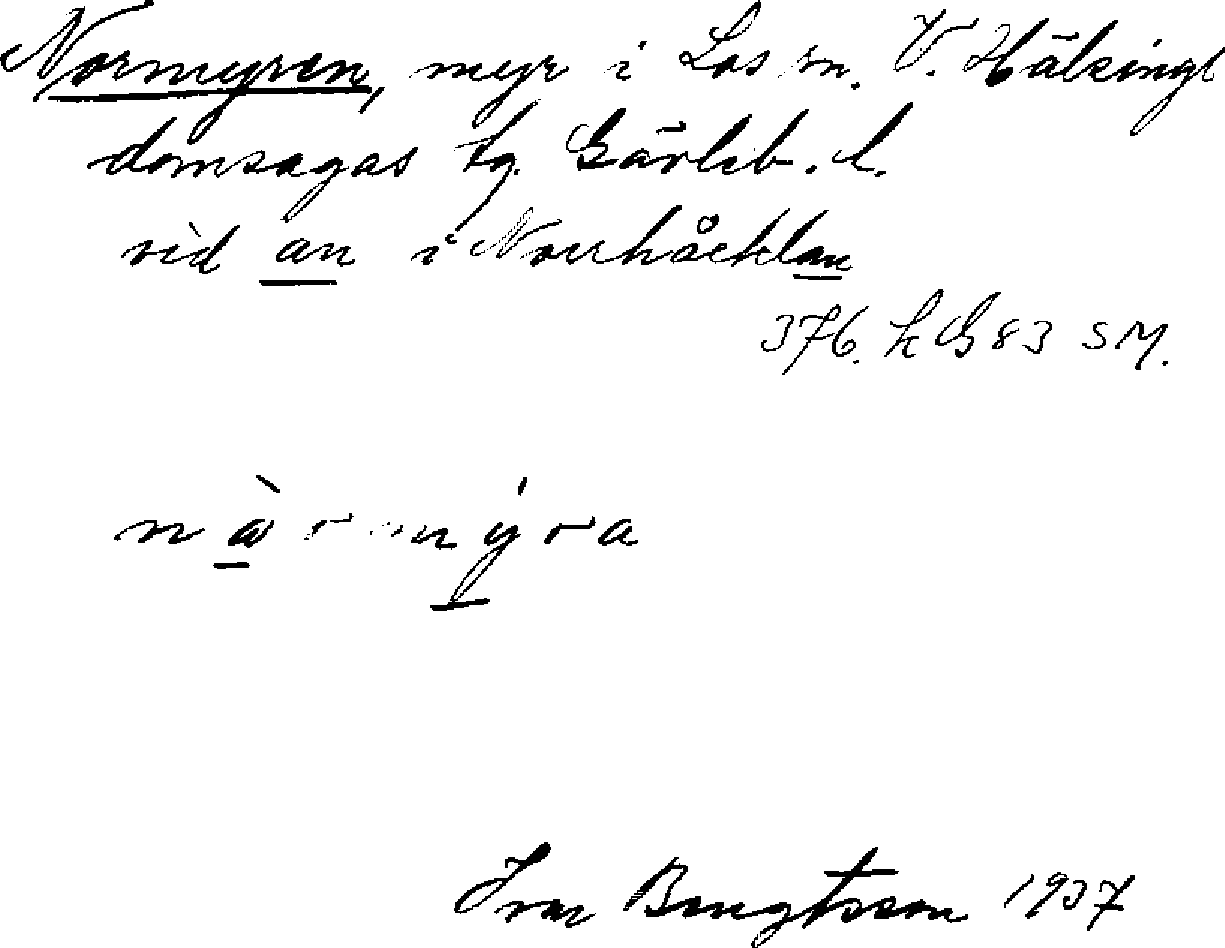 Normyren, myr i Los sn. V. Hälsingl
domsagas tg. Gävleb. l.
vid an i Norrhåcklan
376. k G 83 SM.
nàrmýra
Ivar Bengtsson 1937